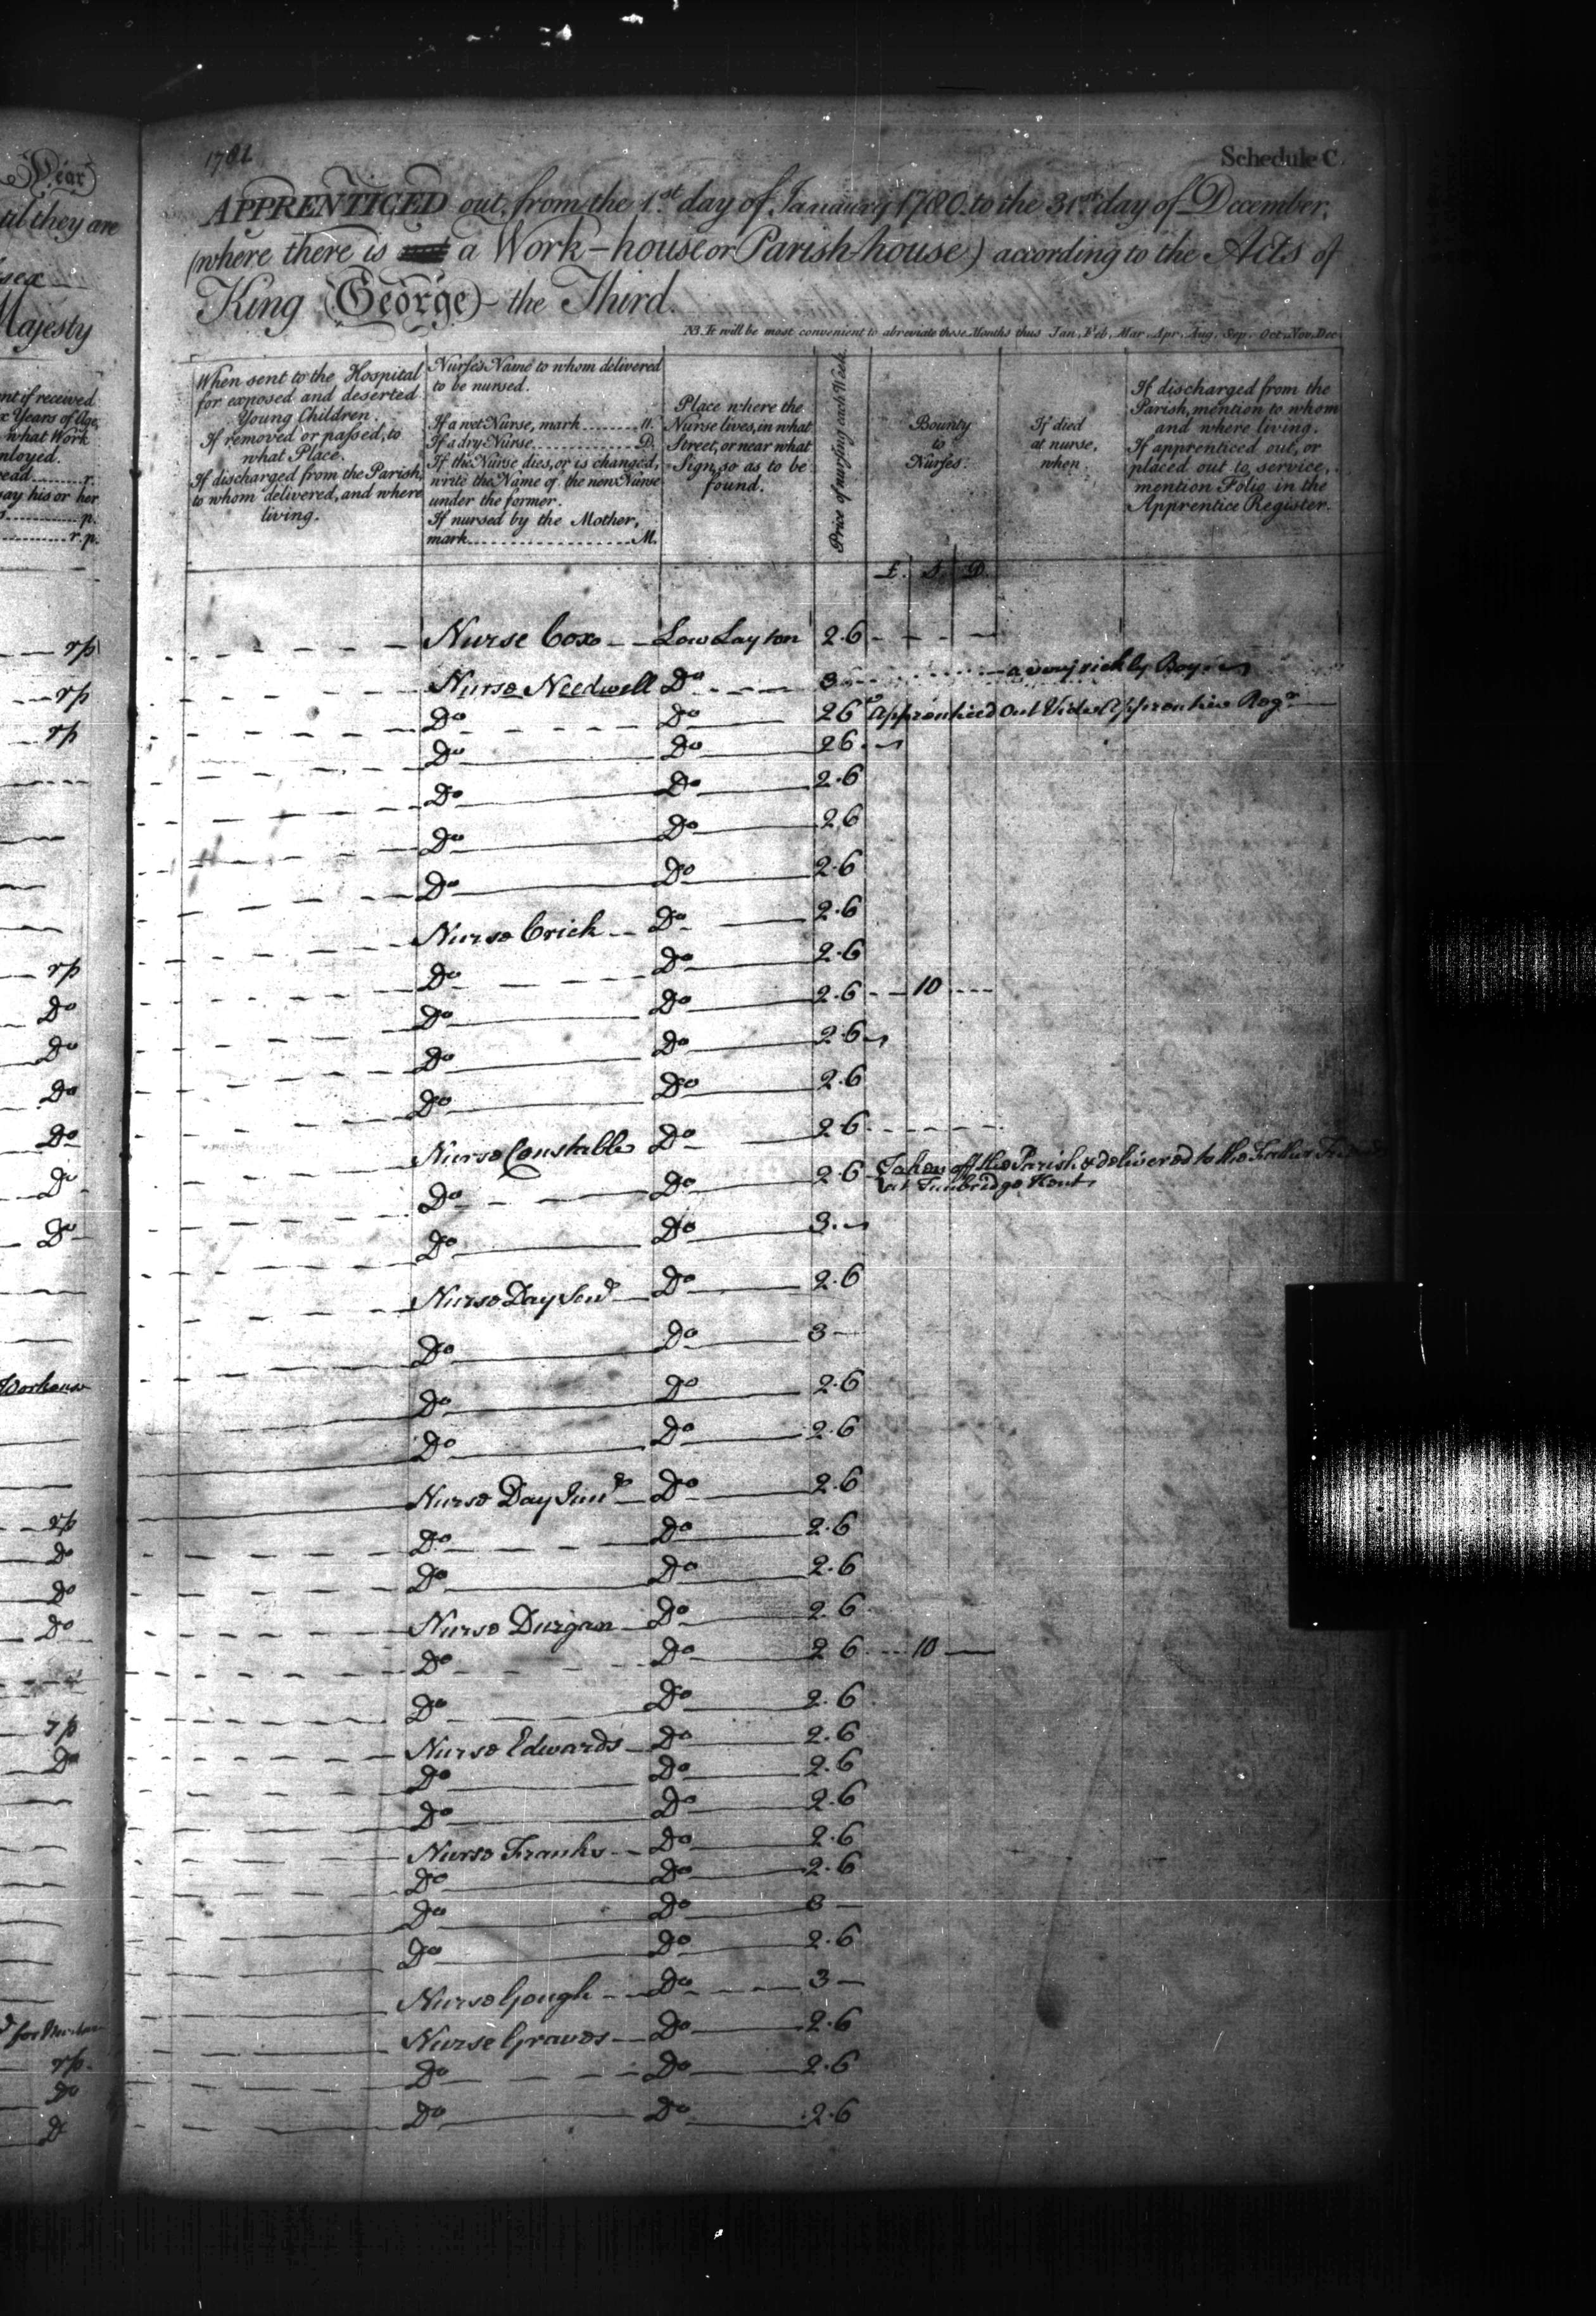 Year
till they are
sex
Majesty
ent if received
x Years of Age,
what Work
employed.
read r.
say his or her
p.
r.p.
Schedule C.
APPRENTICED out, from the 1.st day of January 1780 to the 31.st day of December,
(where there is a Work-house or Parish-house) according to the Acts of
King George the Third.
NB. It will be most convenient to abreviate these Months thus Jan, Feb, Mar, Apr, Aug, Sep, Oct, Nov, Dec.
When sent to the Hospital
for exposed and deserted
Young Children.
If removed or passed, to
what Place.
If discharged from the Parish,
to whom delivered, and where
living.
Nurse's Name to whom delivered
to be nursed.
If a wet Nurse, mark W.
If a dry Nurse D.
If the Nurse dies, or is changed,
write the Name of the new Nurse
under the former.
If nursed by the Mother,
mark M.
Place where the
Nurse lives, in what
Street, or near what
Sign, so as to be
found.
Price of nursing each Week.
Bounty
to
Nurses.
If died
at nurse,
when
If discharged from the
Parish, mention to whom
and where living.
If apprenticed out, or
placed out to service,
mention Folio in the
Apprentice Register.
£. S. D.
rp Nurse Cox Low Layton 2.6
rp Nurse Needwell Do 3 a very sickly Boy
rp Do Do 2 6 Apprenticed out Vide Apprentice Regr
Do Do 2 6
Do Do 2.6
Do Do 2 6
Do Do 2.6
Nurse Crick Do 2.6
rp Do Do 2.6
Do Do Do 2.6 10
Do Do Do 2.6
Do Do Do 2.6
Do Nurse Constable Do 2.6
Do Do Do 2.6 Taken off the Parish & delivered to the Father
at Tunbridge Kent
Do Do Do 3
Nurse Day Senr Do 2.6
Do Do 3
Workouse Do Do 2.6
Do Do 2.6
Nurse Day Junr Do 2.6
rp Do Do 2.6
Do Do Do 2.6
Do Nurse Durgan Do 2.6
Do Do Do 2 6 10
Do Do 2.6
rp Nurse Edwards Do 2.6
Do Do Do 2.6
Do Do 2.6
Nurse Franks Do 2.6
Do Do 2.6
Do Do 3
Do Do 2.6
Nurse Gough Do 3
for Nurse Graves Do 2.6
rp Do Do 2.6
Do Do Do 2.6
D